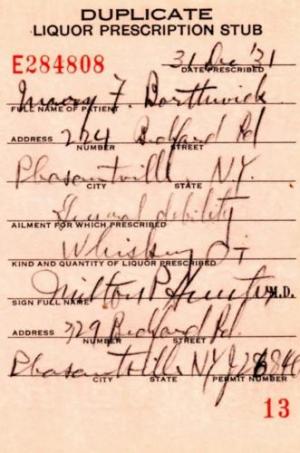 DUPLICATE
LIQUOR PRESCRIPTION STUB
E284808
31 Dec '31
DATE PRESCRIBED
F. Borthwick
FULL NAME OF PATIENT
ADDRESS 224 Bedford Rd
NUMBER STREET
Pleasantville, N.Y.
CITY STATE
General debility
AILMENT FOR WHICH PRESCRIBED
Whiskey
KIND AND QUANTITY OF LIQUOR PRESCRIBED
Milton P. M.D.
SIGN FULL NAME
ADDRESS 329 Bedford Rd.
NUMBER STREET
Pleasantville NY
CITY STATE PERMIT NUMBER
13